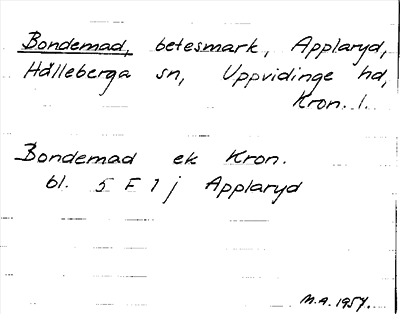 Bondemad, betesmark, Applaryd,
Hälleberga sn, Uppvidinge hd,
Kron. l.
Bondemad ek Kron.
bl. 5 F 1 j Applaryd
M.A. 1957.